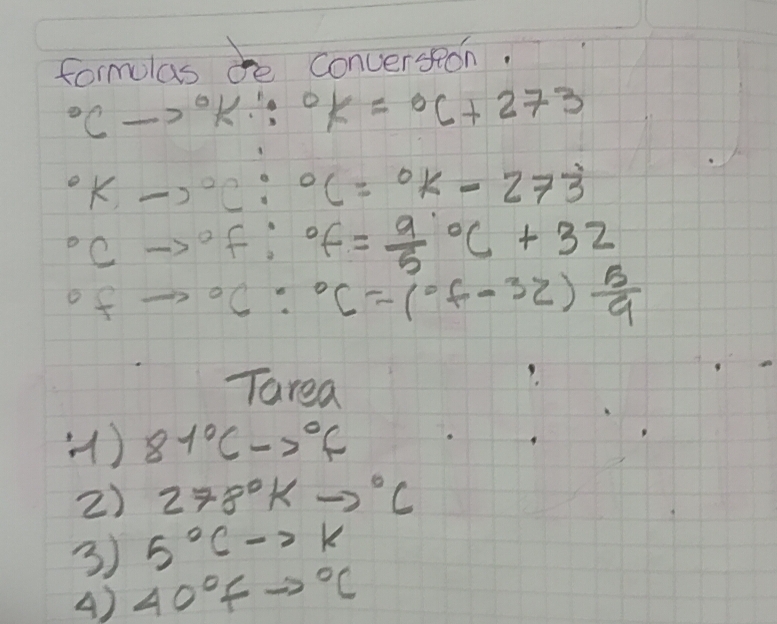 formulas de conversión.
°C -> °K: °K = °C + 273
°K -> °C: °C = °K - 273
°C -> °f: °f = 9/5 °C + 32
°f -> °C: °C = (°f - 32) 5/9
Tarea
1) 81°C -> °f
2) 278°K -> °C
3) 5°C -> K
4) 40°f -> °C